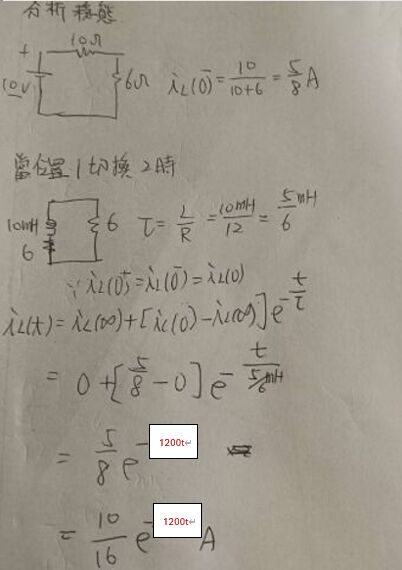 分析穩態
+ 10Ω
10V 6Ω iL(0⁻) = 10/(10+6) = 5/8 A
當位置1切換2時
10mH 6 6 τ = L/R = 10mH/12 = 5/6 mH
∵ iL(0⁺) = iL(0⁻) = iL(0)
iL(t) = iL(∞) + [iL(0) - iL(∞)] e^-t/τ
= 0 + [5/8 - 0] e^-t/(5/6 mH)
= 5/8 e^-1200t
= 10/16 e^-1200t A